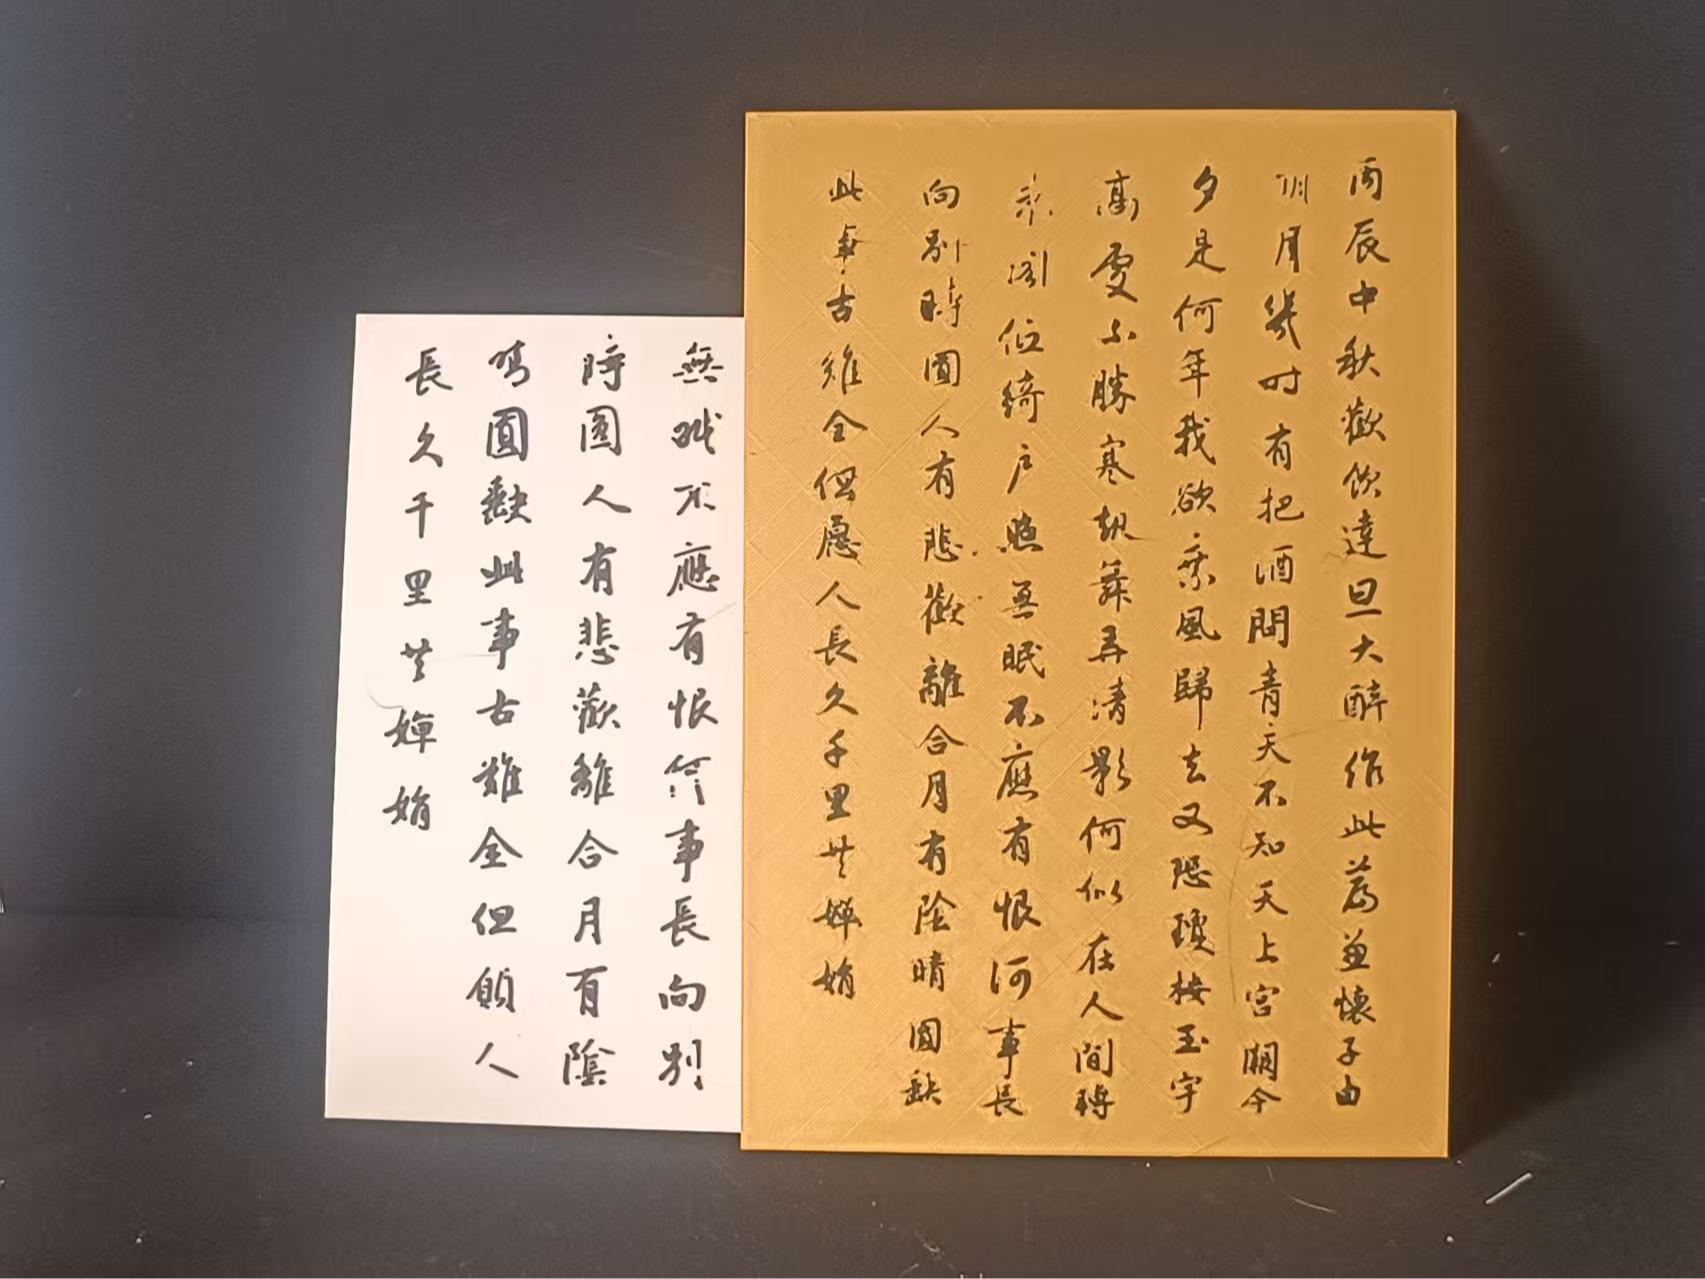 丙辰中秋歡飲達旦大醉作此篇兼懷子由
明月幾时有把酒問青天不知天上宮闕今
夕是何年我欲乘風歸去又恐瓊楼玉宇
高處不勝寒起舞弄清影何似在人間轉
朱阁低綺户照無眠不應有恨何事長
向别時圓人有悲歡離合月有陰晴圓缺
此事古難全但愿人長久千里共嬋娟
無眠不應有恨何事長向别
時圓人有悲歡離合月有陰
晴圓缺此事古難全但願人
長久千里共嬋娟